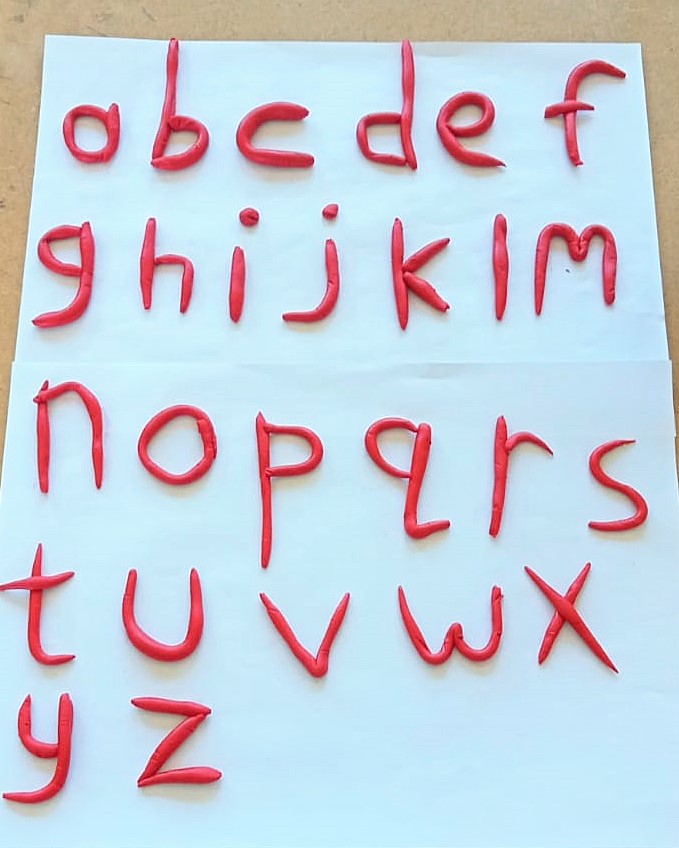 a b c d e f
g h i j k l m
n o p q r s
t u v w x
y z